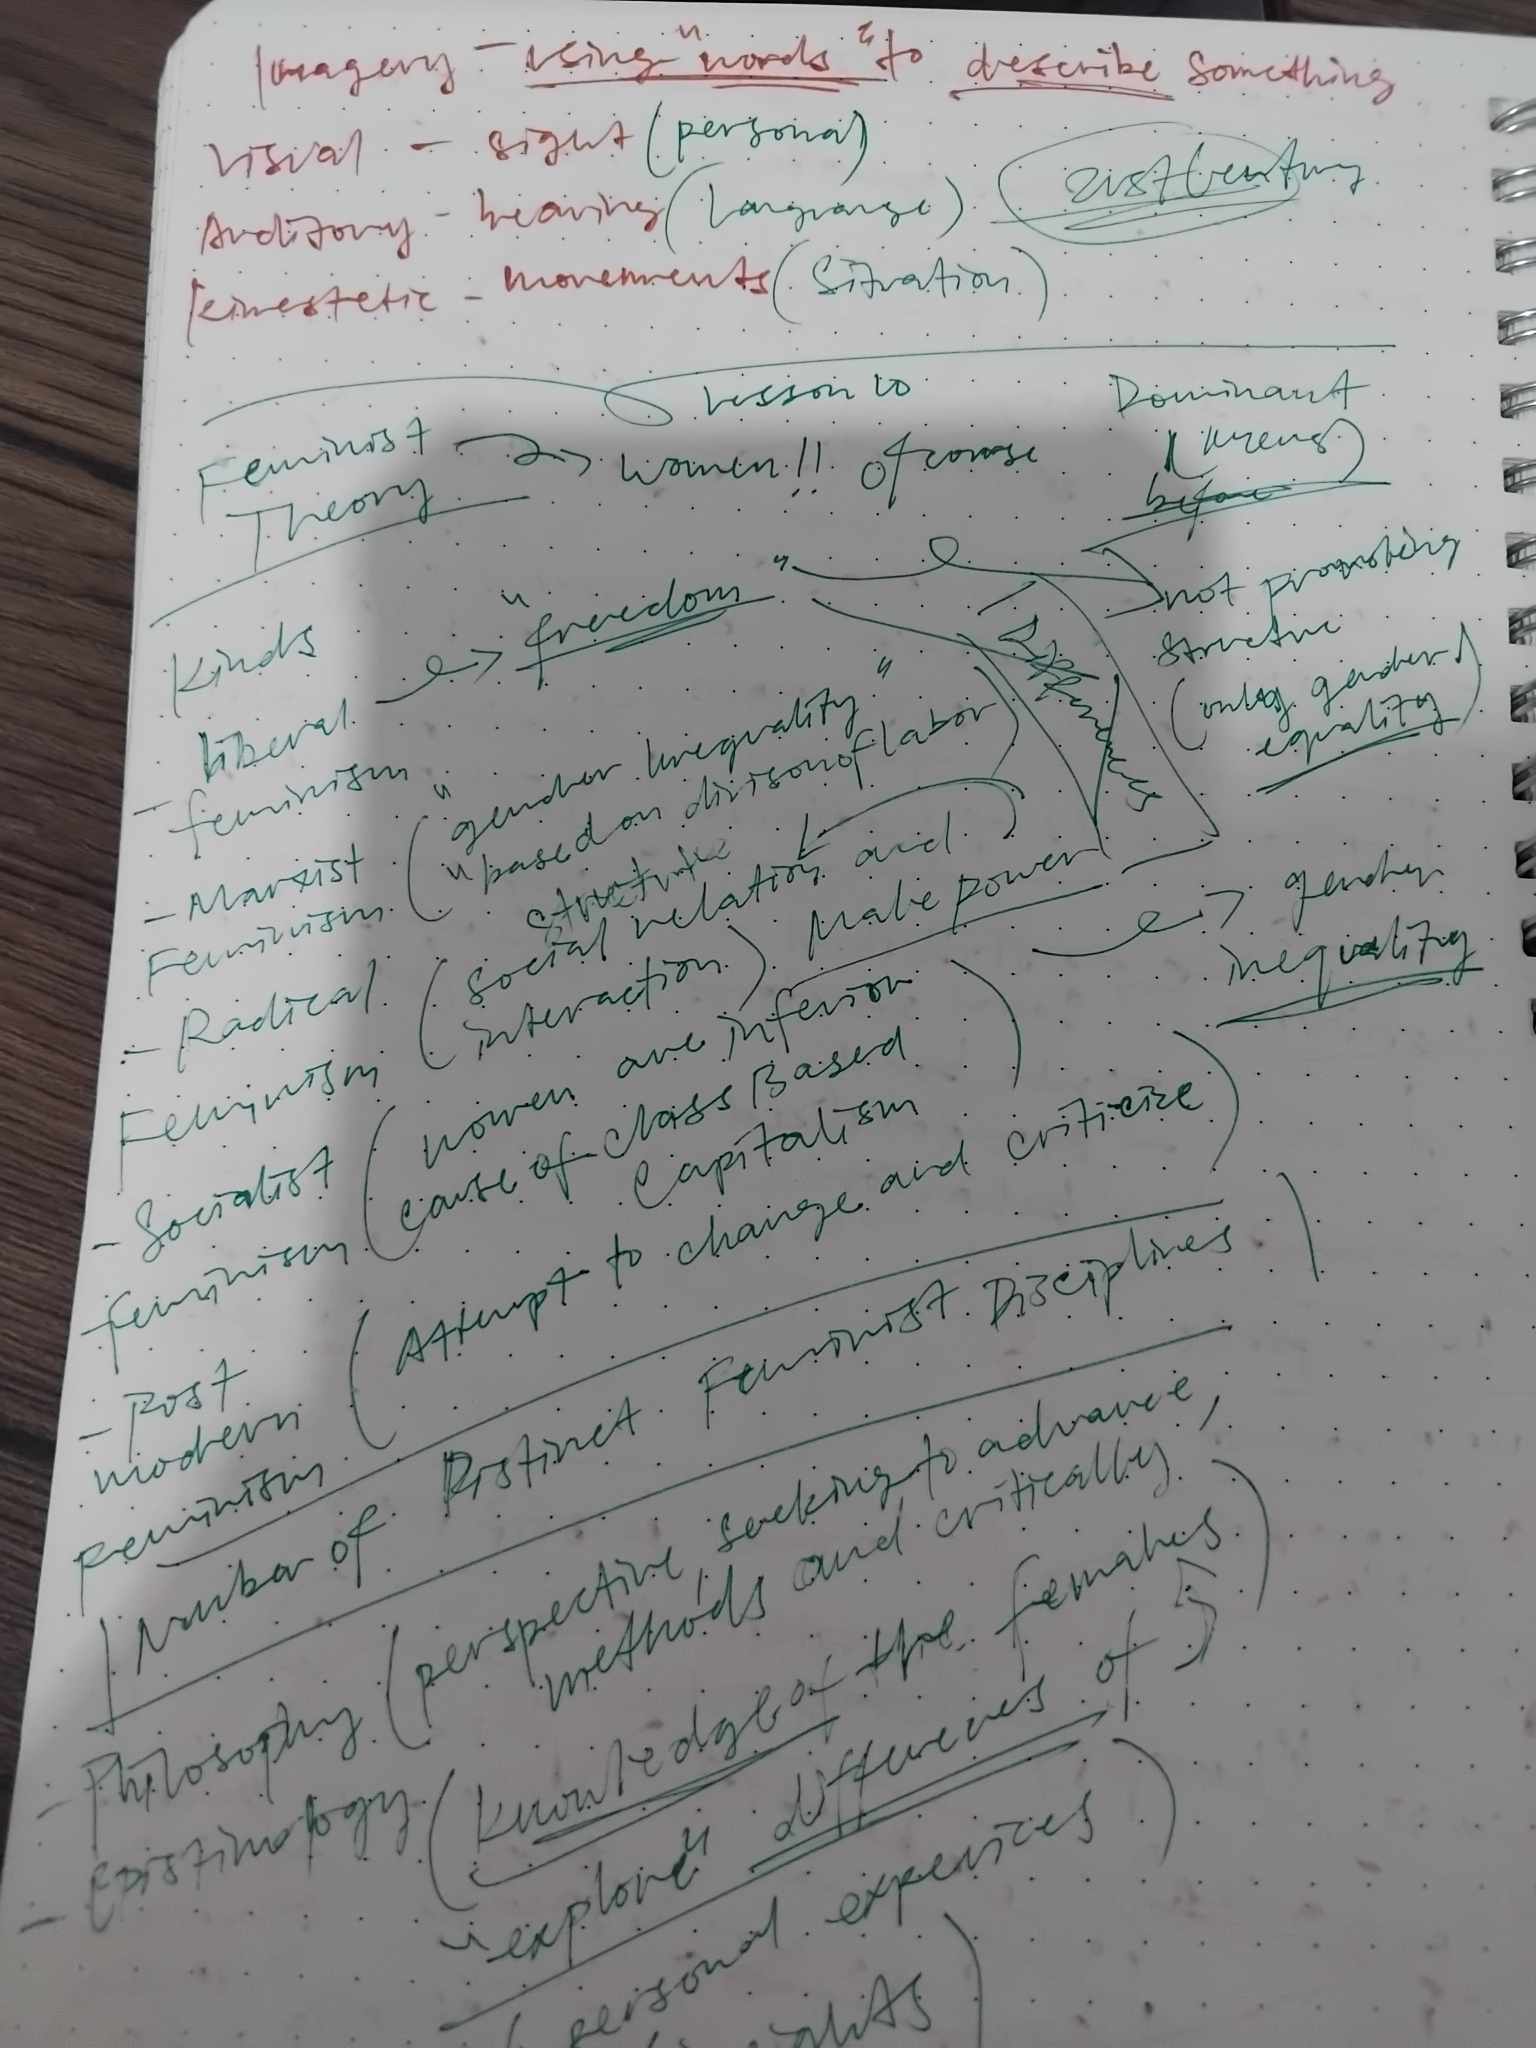 Imagery - using "words" to describe something
Visual - sight (personal)
Auditory - hearing (language)
21st Century
Kinestetic - movements (situation)
Lesson 10
Feminist Theory → women!! Of course
Dominant
(mens)
before
Kinds
- liberal feminism → "freedom"
not promoting
structure
(only gender
equality)
Differences
- Marxist Feminism ("gender inequality"
"based on divison of labor)
structure
- Radical Feminism (social relation and
interaction) Male power
→ gender
inequality
- Socialist feminism (women are inferior
cause of class Based
Capitalism)
- Post modern Feminism (Attempt to change and criticize)
Number of Distinct Feminist Disciplines
- Philosophy (perspective, seeking to advance,
methods and critically)
- Epistimology (knowledge of the females)
"explore" differences of
personal experices)